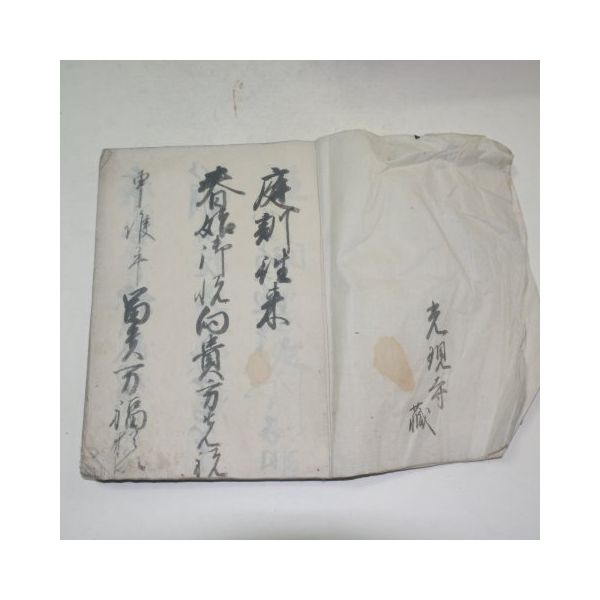 光現寺藏
庭訓往来
春始御悦向貴方先祝
申候畢富貴万福猶